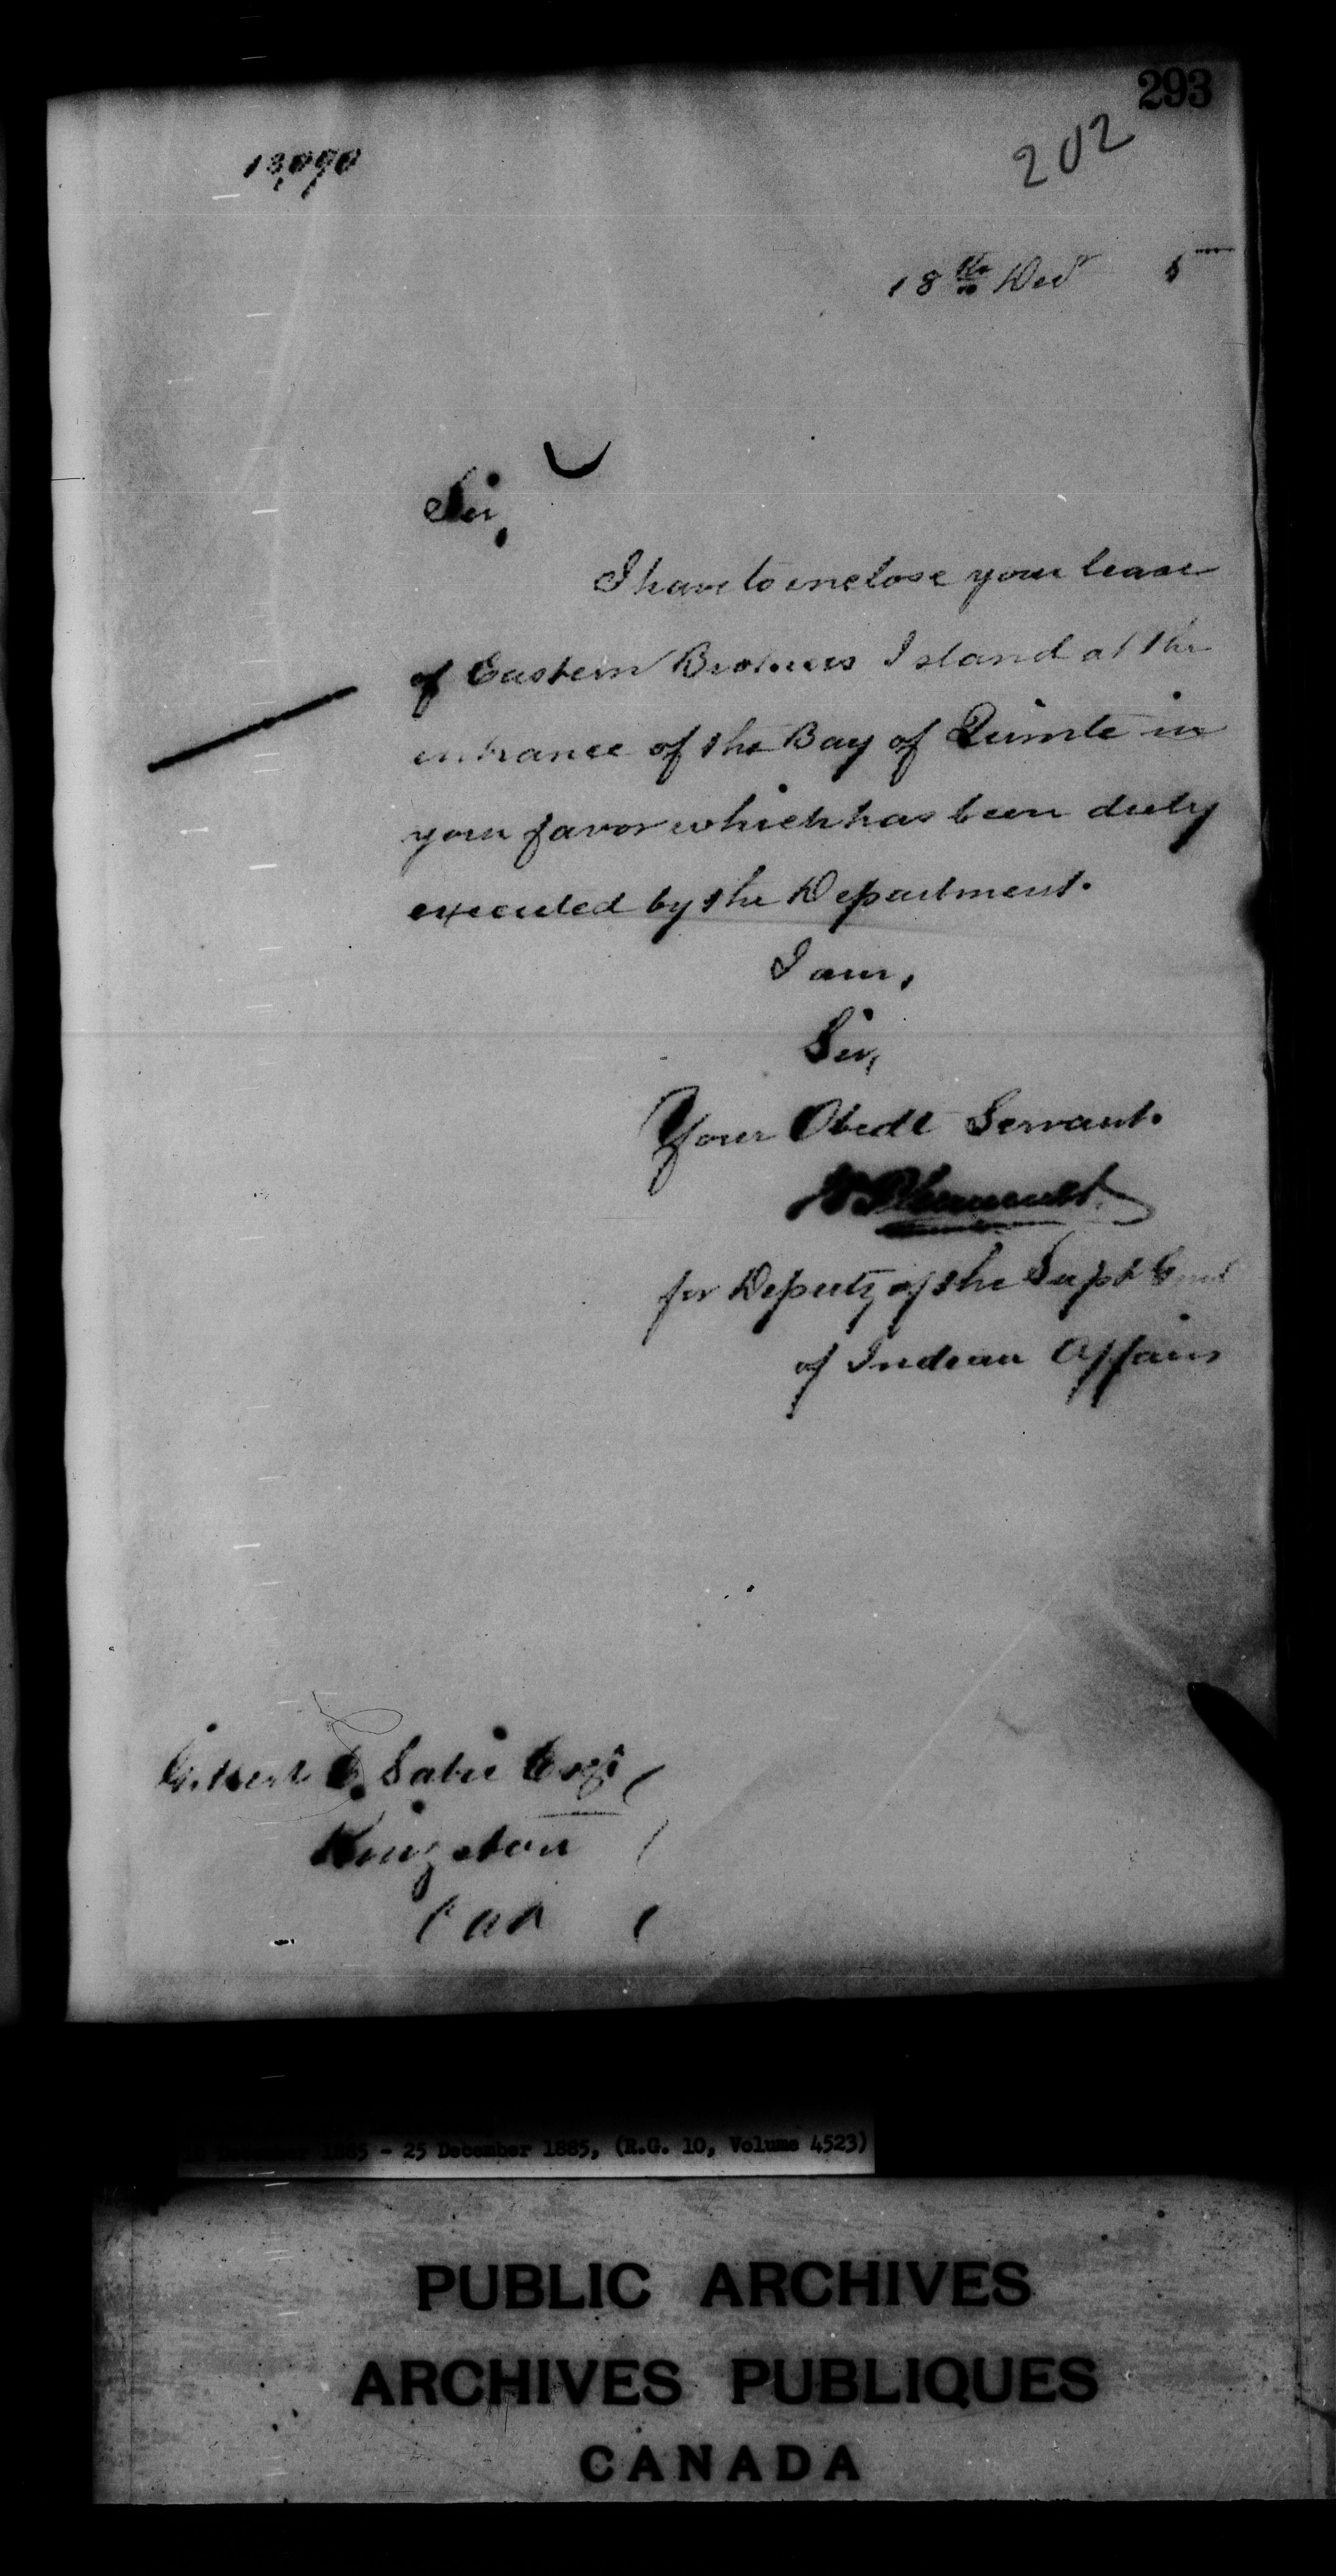 293
202
13,090
18th Decr 5
Sir,
I have to enclose your lease
of Eastern Brothers Island at the
entrance of the Bay of Quinte in
your favor which has been duly
executed by the Department.
I am,
Sir,
Your Obedt Servant.
for Deputy of the Supt Genl
of Indian Affairs
Gilbert Esqr
Kingston
Ont
December 1885 - 25 December 1885, (R.G. 10, Volume 4523)
PUBLIC ARCHIVES
ARCHIVES PUBLIQUES
CANADA